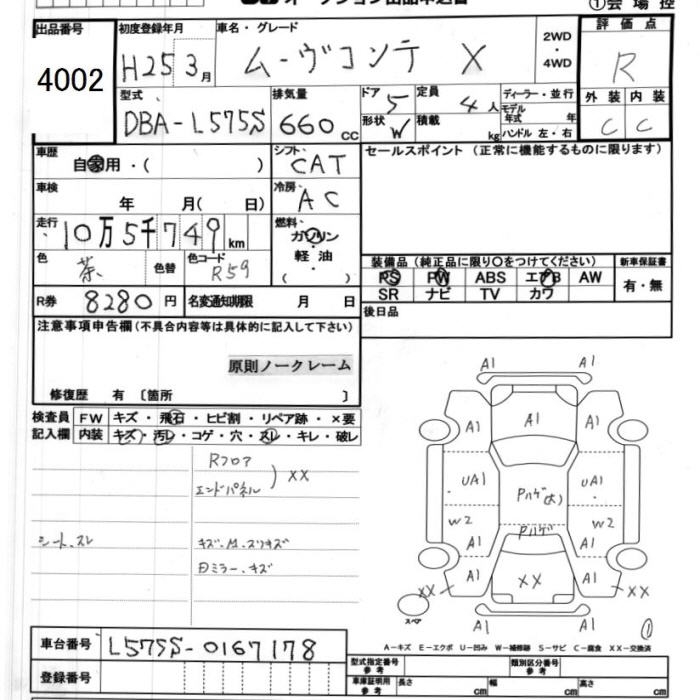 オークション出品申込書 ①会場控
出品番号 初度登録年月 車名・グレード 2WD ・ 4WD 評価点
4002 H25 3月 ムーヴコンテ X R
型式 排気量 ドア 5 定員 4人 ディーラー・並行 外装 内装
DBA-L575S 660cc 形状 W 積載 kg モデル年式 年 C C
ハンドル 左・右
車歴 自家用・( ) シフト CAT セールスポイント (正常に機能するものに限ります)
車検 年 月( 日) 冷房 AC
走行 10万5千749km 燃料 ガソリン・軽油・( )
色 茶 色替 色コード R59 装備品 (純正品に限り〇をつけてください) 新車保証書
PS PW ABS エアB AW 有・無
R券 8280円 名変通知期限 月 日 SR ナビ TV カワ
注意事項申告欄 (不具合内容等は具体的に記入して下さい) 後日品
原則ノークレーム
修復歴 有 〔箇所 〕
検査員 FW キズ・飛石・ヒビ割・リペア跡・×要
記入欄 内装 キズ・汚レ・コゲ・穴・スレ・キレ・破レ
Rフロア
エンドパネル ) XX
シート、スレ キズ.M.スリキズ
日ミラー、キズ
A1 A1
A1 A1 A1
UA1 Pハゲ(大) UA1
W2 Pハゲ W2
A1 A1
XX A1 XX A1 XX
スペア A1 A1 ①
A-キズ E-エクボ U-凹み W-補修跡 S-サビ C-腐食 XX-交換済
車台番号 L575S-0167178
登録番号 型式指定番号 参考 類別区分番号 参考
車庫証明用 参考 長さ cm 幅 cm 高さ cm